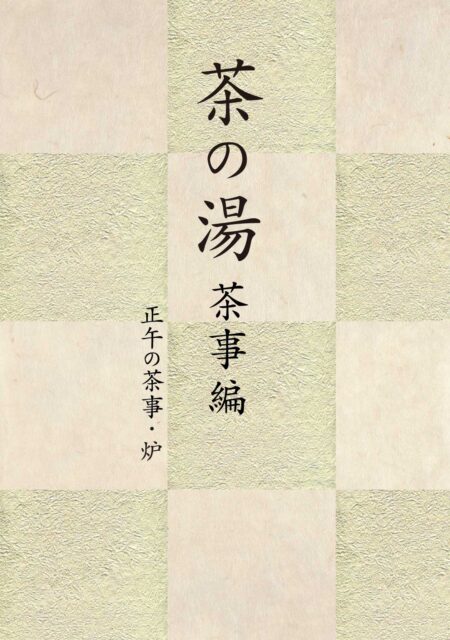 茶の湯 茶事編
正午の茶事・炉